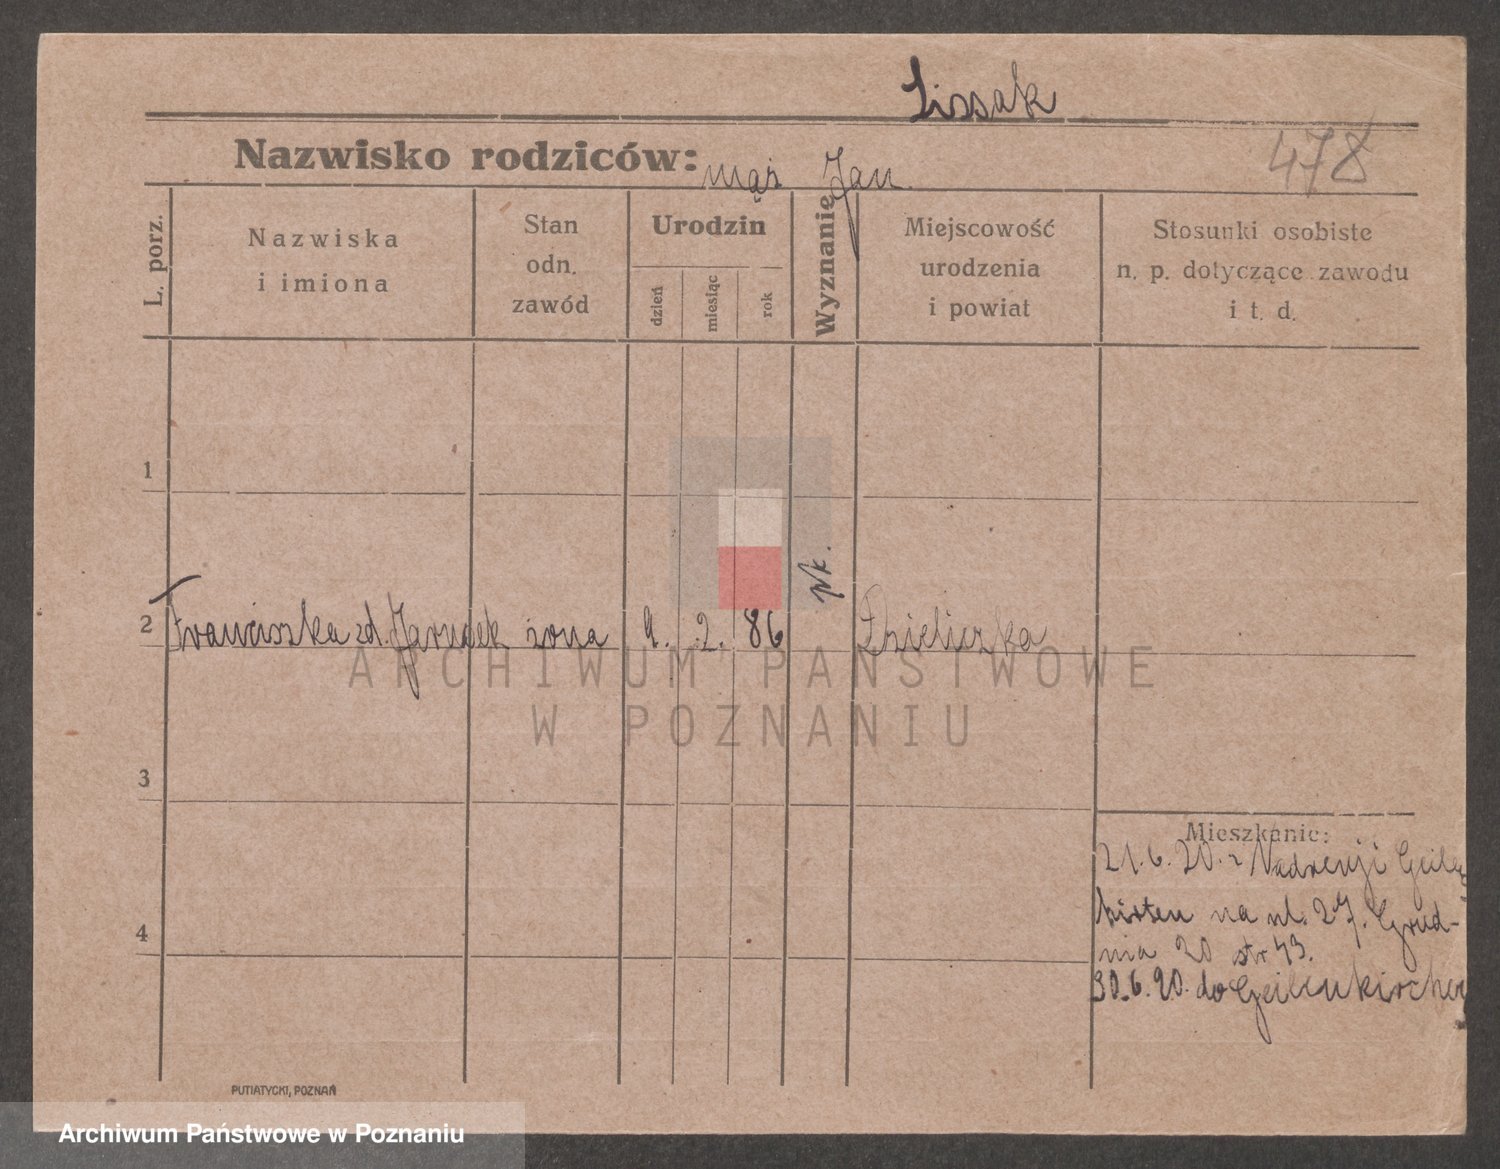 Lissak
478
Nazwisko rodziców: mąż Jan
L. porz.
Nazwiska
i imiona
Stan
odn.
zawód
Urodzin
dzień
miesiąc
rok
Wyznanie
Miejscowość
urodzenia
i powiat
Stosunki osobiste
n. p. dotyczące zawodu
i t. d.
1
2 Franciszka zd. żona 9. 2. 86 Dzieliczka
3
Mieszkanie:
21.6.20. z Nadrenji
na ul. 27. Grud-
nia 20 str 43.
4
30.6.20. do Geilenkirchen
ARCHIWUM PAŃSTWOWE
W POZNANIU
PUTIATYCKI, POZNAŃ
Archiwum Państwowe w Poznaniu